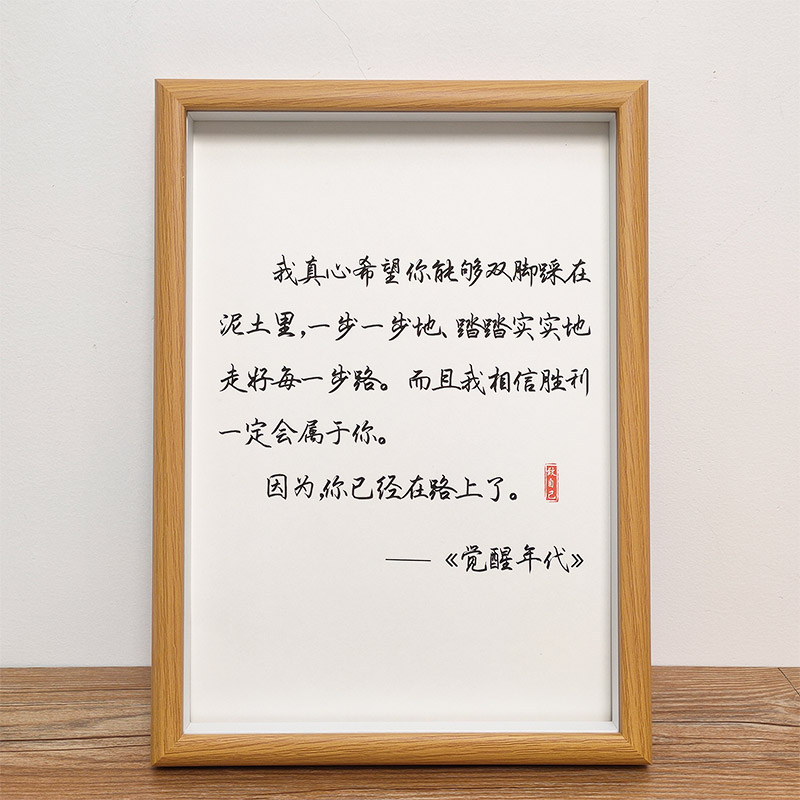 我真心希望你能够双脚踩在
泥土里,一步一步地、踏踏实实地
走好每一步路。而且我相信胜利
一定会属于你。
因为,你已经在路上了。
致自己
——《觉醒年代》